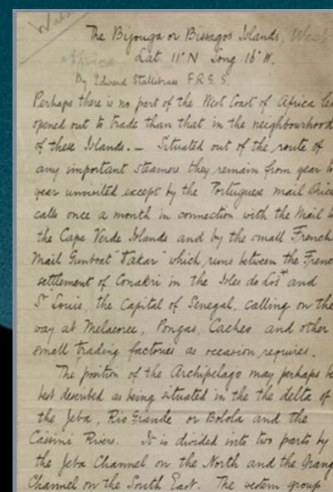 The Bijouga or Bissagos Islands, West
Africa
Lat. 11° N Long 16° W.
By Edward Stallibrass F.R.G.S.
Perhaps there is no part of the West Coast of Africa les
opened out to trade than that in the neighbourhood
of these Islands. — Situated out of the route of
any important steamers they remain from year to
year unvisited except by the Portuguese mail
calls once a month in connection with the Mail to
the Cape Verde Islands and by the small French
Mail Gunboat "Dakar" which runs between the Frenc
settlement of Conakri in the Isles de Los and
St Louis, the Capital of Senegal, calling on the
way at Melacoree, Pongas, Cacheo and other
small trading factories as occasion requires.
The position of the Archipelago may perhaps be
best described as being situated in the the delta of
the Jeba, Rio Grande or Bolola and the
Cassini Rivers. It is divided into two parts by
the Jeba Channel on the North and the Orang
Channel on the South East. The western group